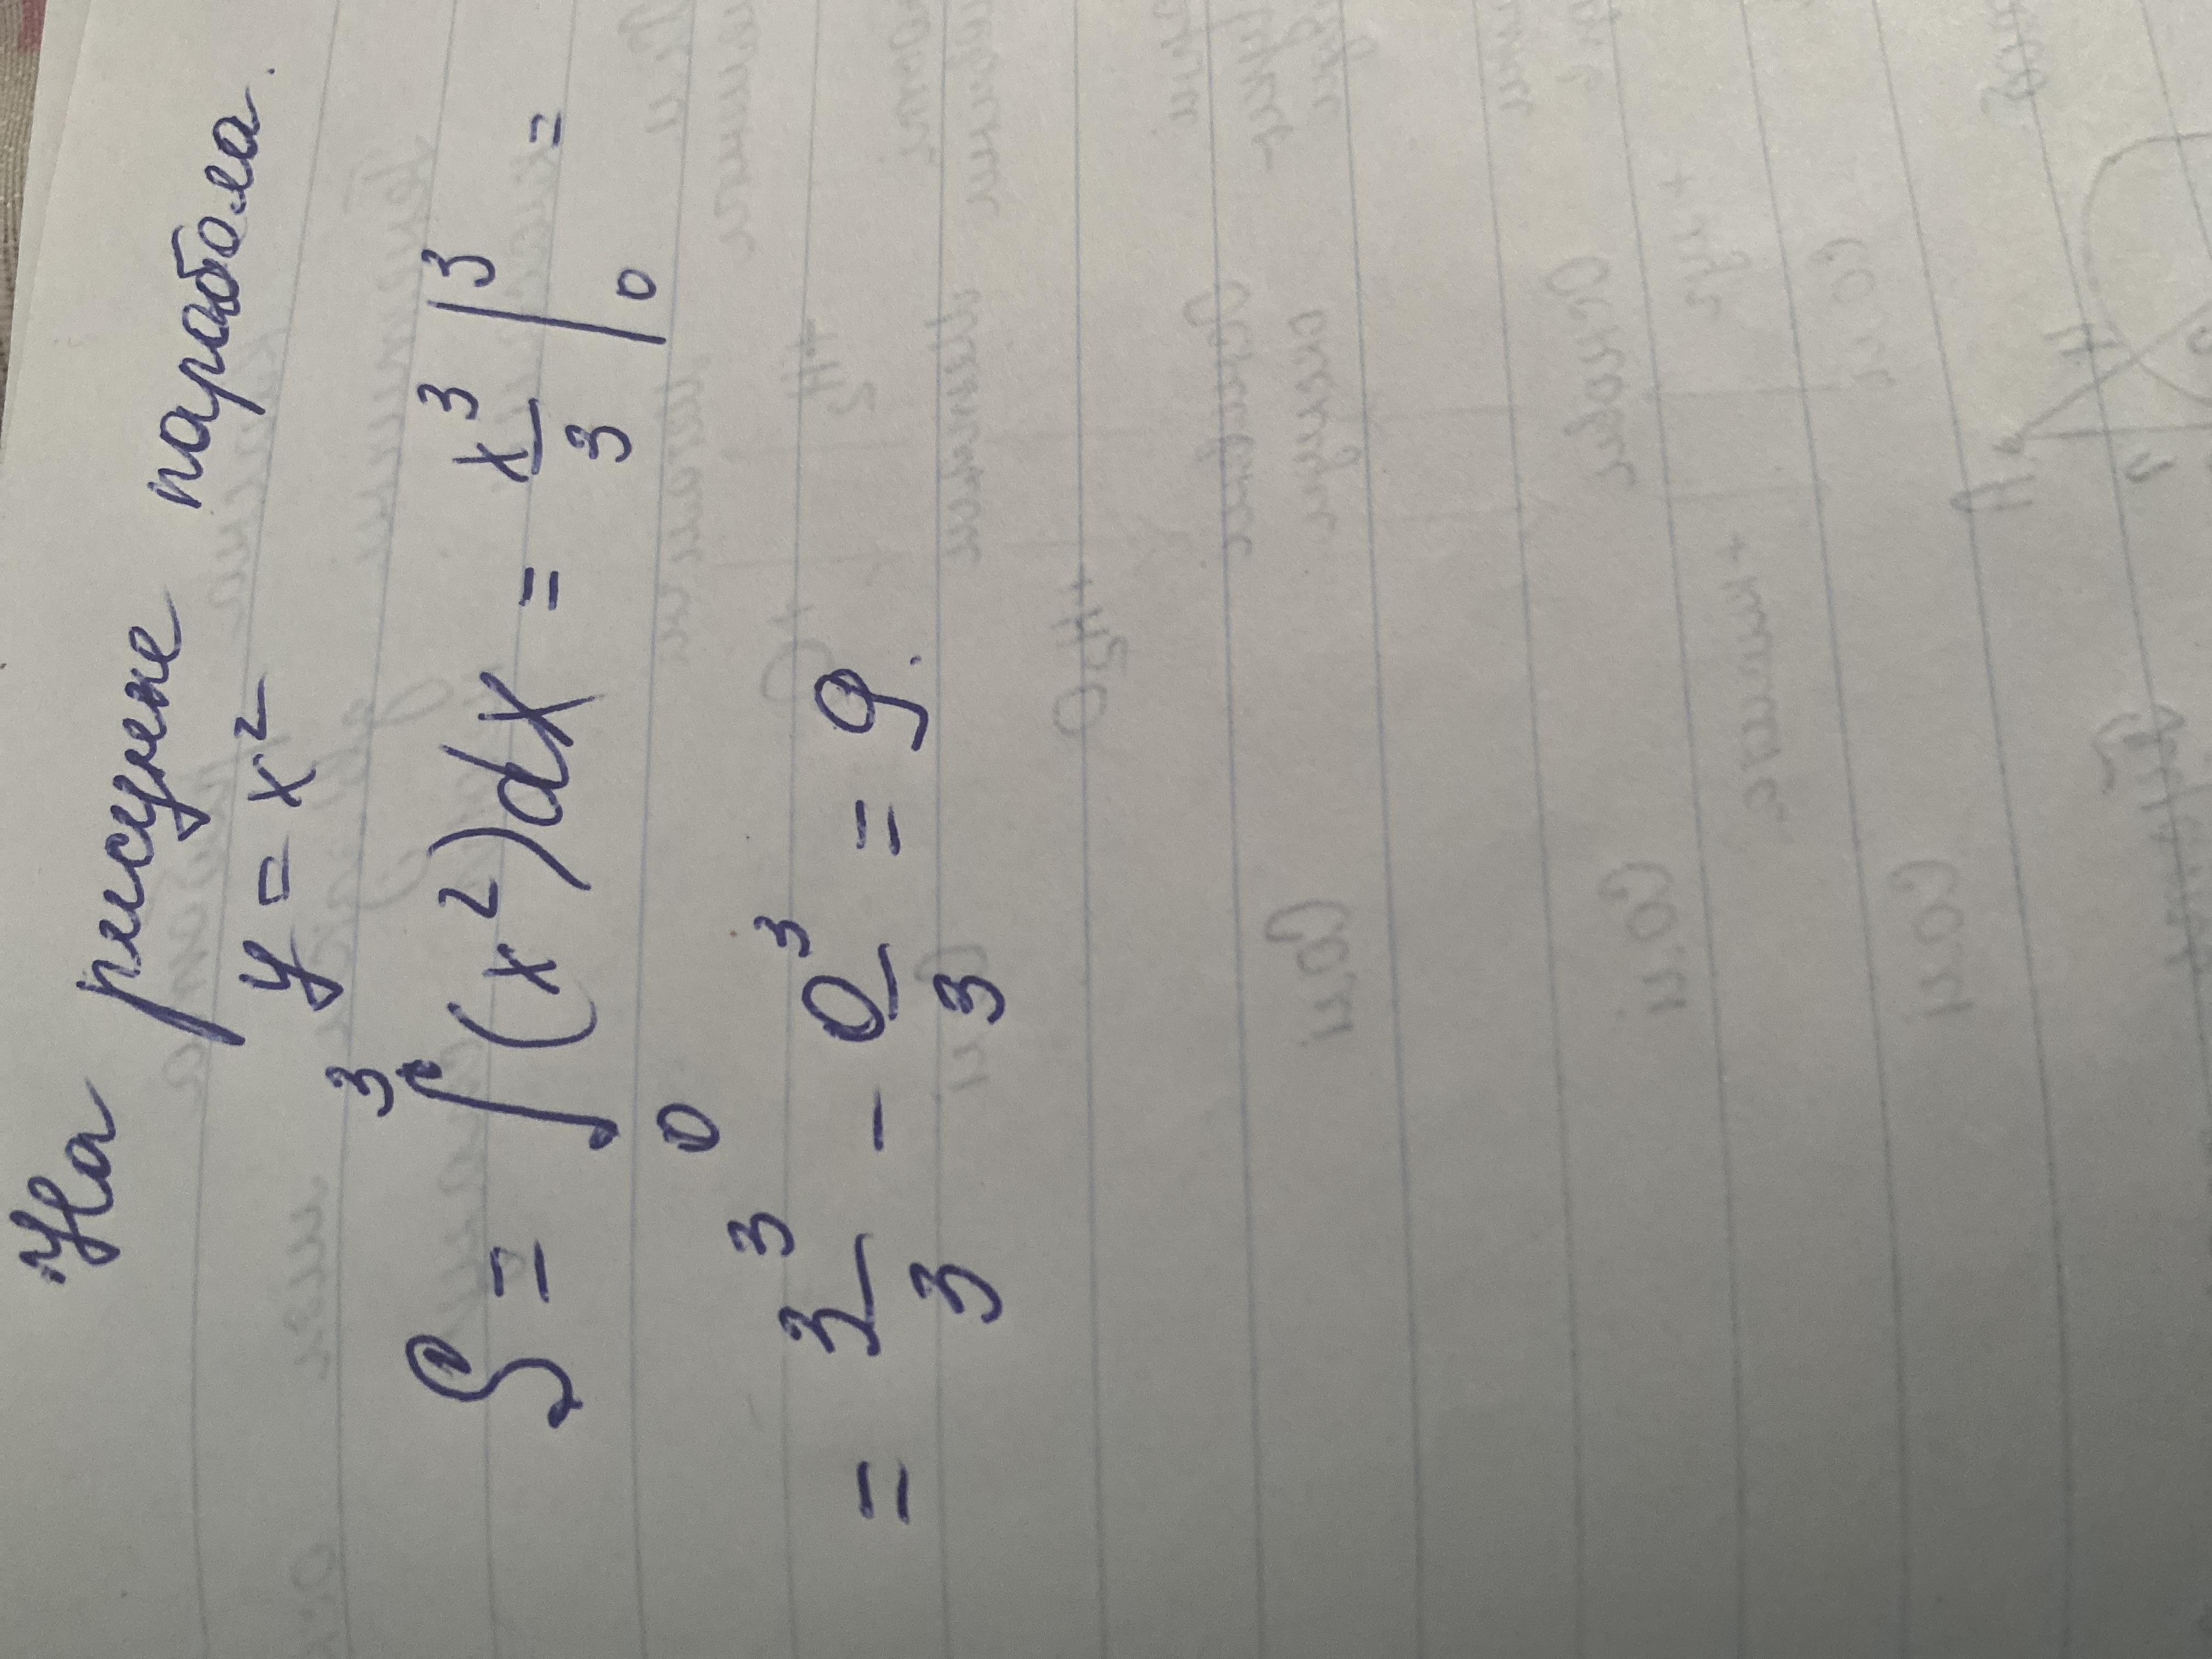 На рисунке парабола.
y = x²
S = ∫₀³ (x²)dx = x³/3 |₀³ =
= 3³/3 - 0³/3 = 9.